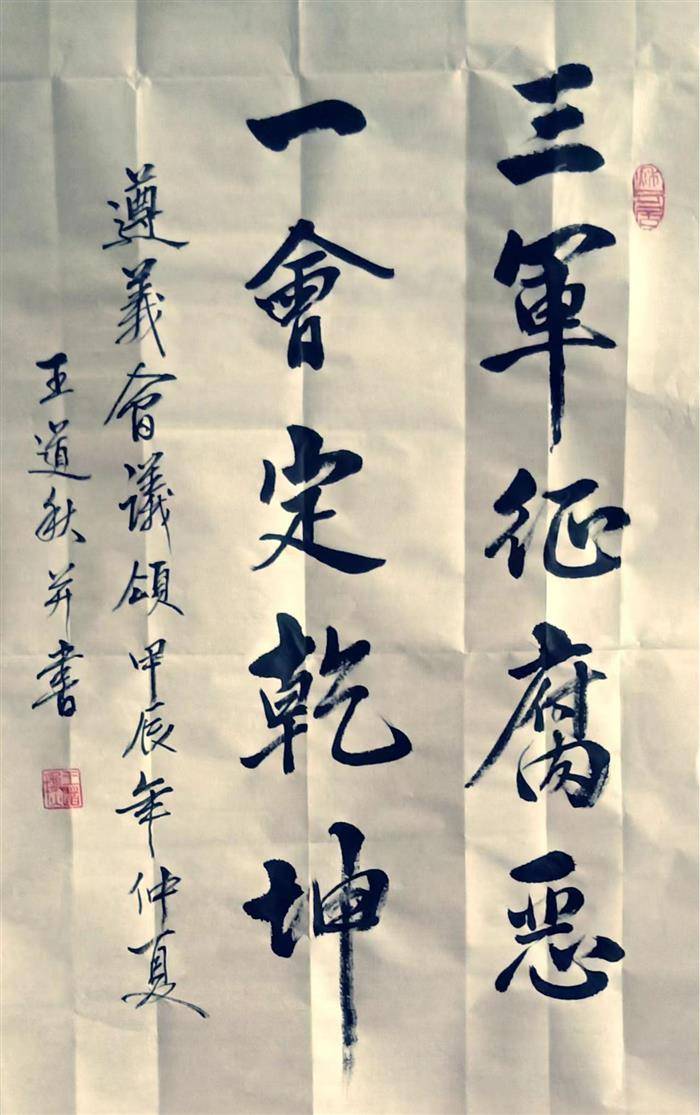 三軍征腐惡
一會定乾坤
遵義會議頌甲辰年仲夏
王道秋并書